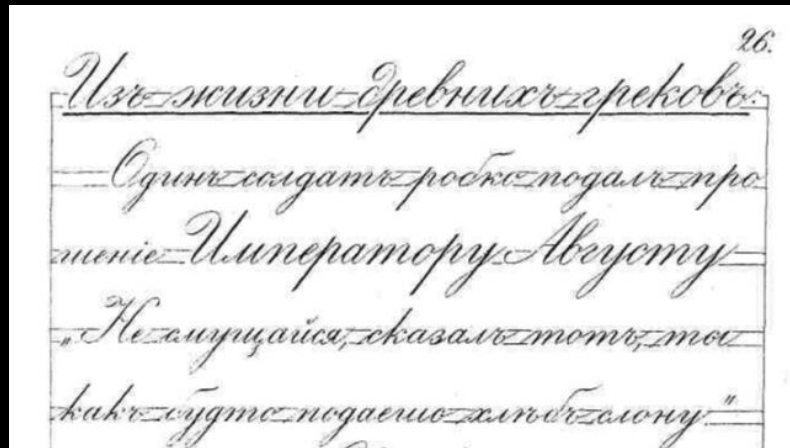 26.
Изъ жизни древнихъ грековъ.
Одинъ солдатъ робко подалъ про
шеніе Императору Августу
„Не смущайся, сказалъ тотъ, ты
какъ будто подаешь хлѣбъ слону"